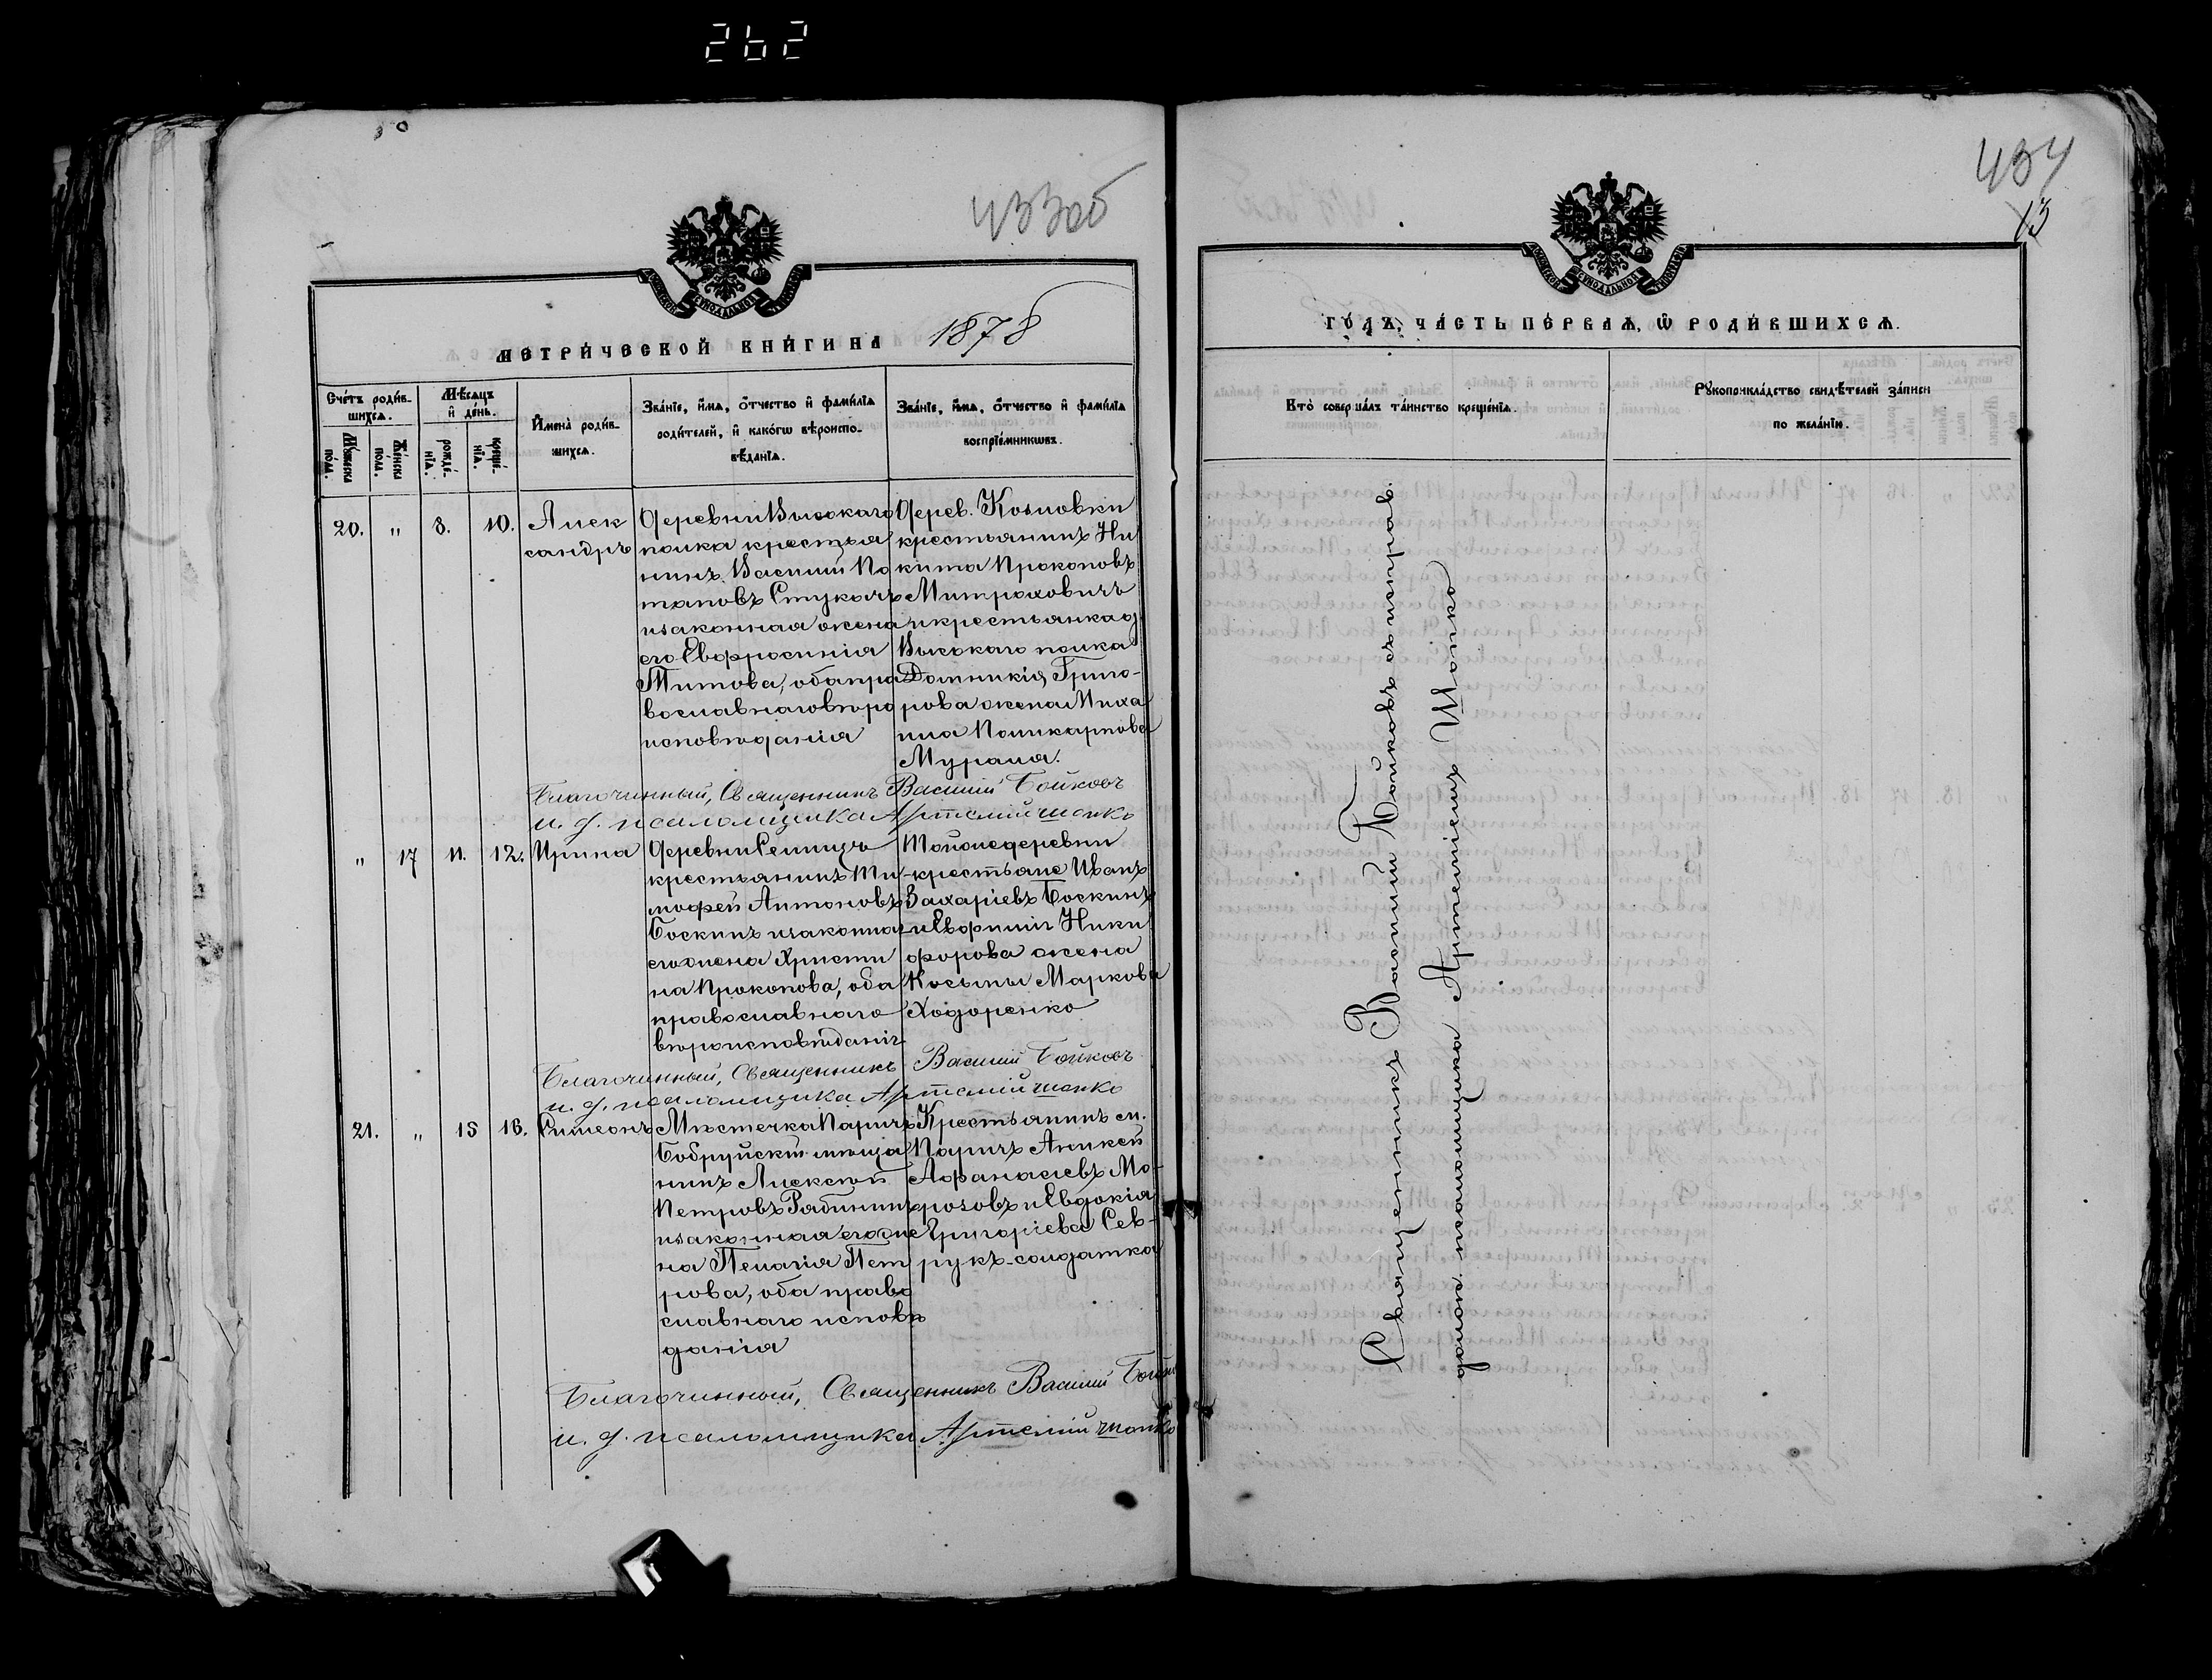 262
433об
МЕТРИ́ЧЕСКОЙ КНИ́ГИ НА 1878
Сче́тъ роди́в-
шихсѧ.
Мѣ́сѧцъ
и҆ де́нь.
Мꙋ́жеска
по́ла.
Же́нска
по́ла.
рожде́-
нїѧ.
креще́-
нїѧ.
И҆мена̀ роди́в-
шихсѧ.
Зва́нїе, и҆́мѧ, ѻ҆́тчество и҆ фами́лїѧ
роди́телей, и҆ како́гѡ вѣроиспо-
вѣ́данїѧ.
Зва́нїе, и҆́мѧ, ѻ҆́тчество и҆ фами́лїѧ
воспрїе́мникѡвъ.
20. " 8. 10.
Алек
сандръ
Деревни Высокаго
полка крестья
нинъ Василий По
таповъ Стукачъ
и законная жена
его Евфросинія
Титова, оба пра
вославнаго вѣро
исповѣданія
Дерев. Козловки
крестьянинъ Ни
кита Прокоповъ
Митраховичъ
и крестьянка д.
Высокаго полка
Домникія Григо-
рова жена Миха
ила Поликарпова
Мурала.
Благочинный, Священникъ Василій Бойковъ
и. д. псаломщика Артемій Шопко
" 17 11. 12.
Ирина
Деревни Селищъ
крестьянинъ Ти
мофей Антоновъ
Боскинъ и законная
его жена Христи
на Прокопова, оба
православнаго
вѣроисповѣданія
Той же деревни
крестьяне Иванъ
Захаріевъ Боскинъ
и Евфимія Ники
форова жена
Косьмы Маркова
Ходоренко
Благочинный, Священникъ Василій Бойковъ
и. д. псаломщика Артемій Шопко
21. " 15 16.
Симеонъ
Мѣстечка Паричъ
Бобруйскій мѣща
нинъ Алексѣй
Петровъ Рабинин
и законная его же
на Пелагія Пет
рова, оба право
славнаго исповѣ
данія
Крестьянинъ м.
Паричъ Аникей
Афанасіевъ Мо-
розовъ и Евдокія
Григоріева Сев-
рукъ-солдатка
Благочинный, Священникъ Василій Бойко
и. д. псаломщика Артемій Шопко
434
13
ГО́ДЪ, ЧА́СТЬ ПЕ́РВАѦ, Ѽ РОДИ́ВШИХСѦ.
Кто̀ соверша́лъ та́инство креще́нїѧ.
Рꙋкоприкла́дство свидѣ́телей за́писи
по жела́нїю.
Священникъ Василій Бойковъ съ исправ.
должн. псаломщика Артеміемъ Шопко